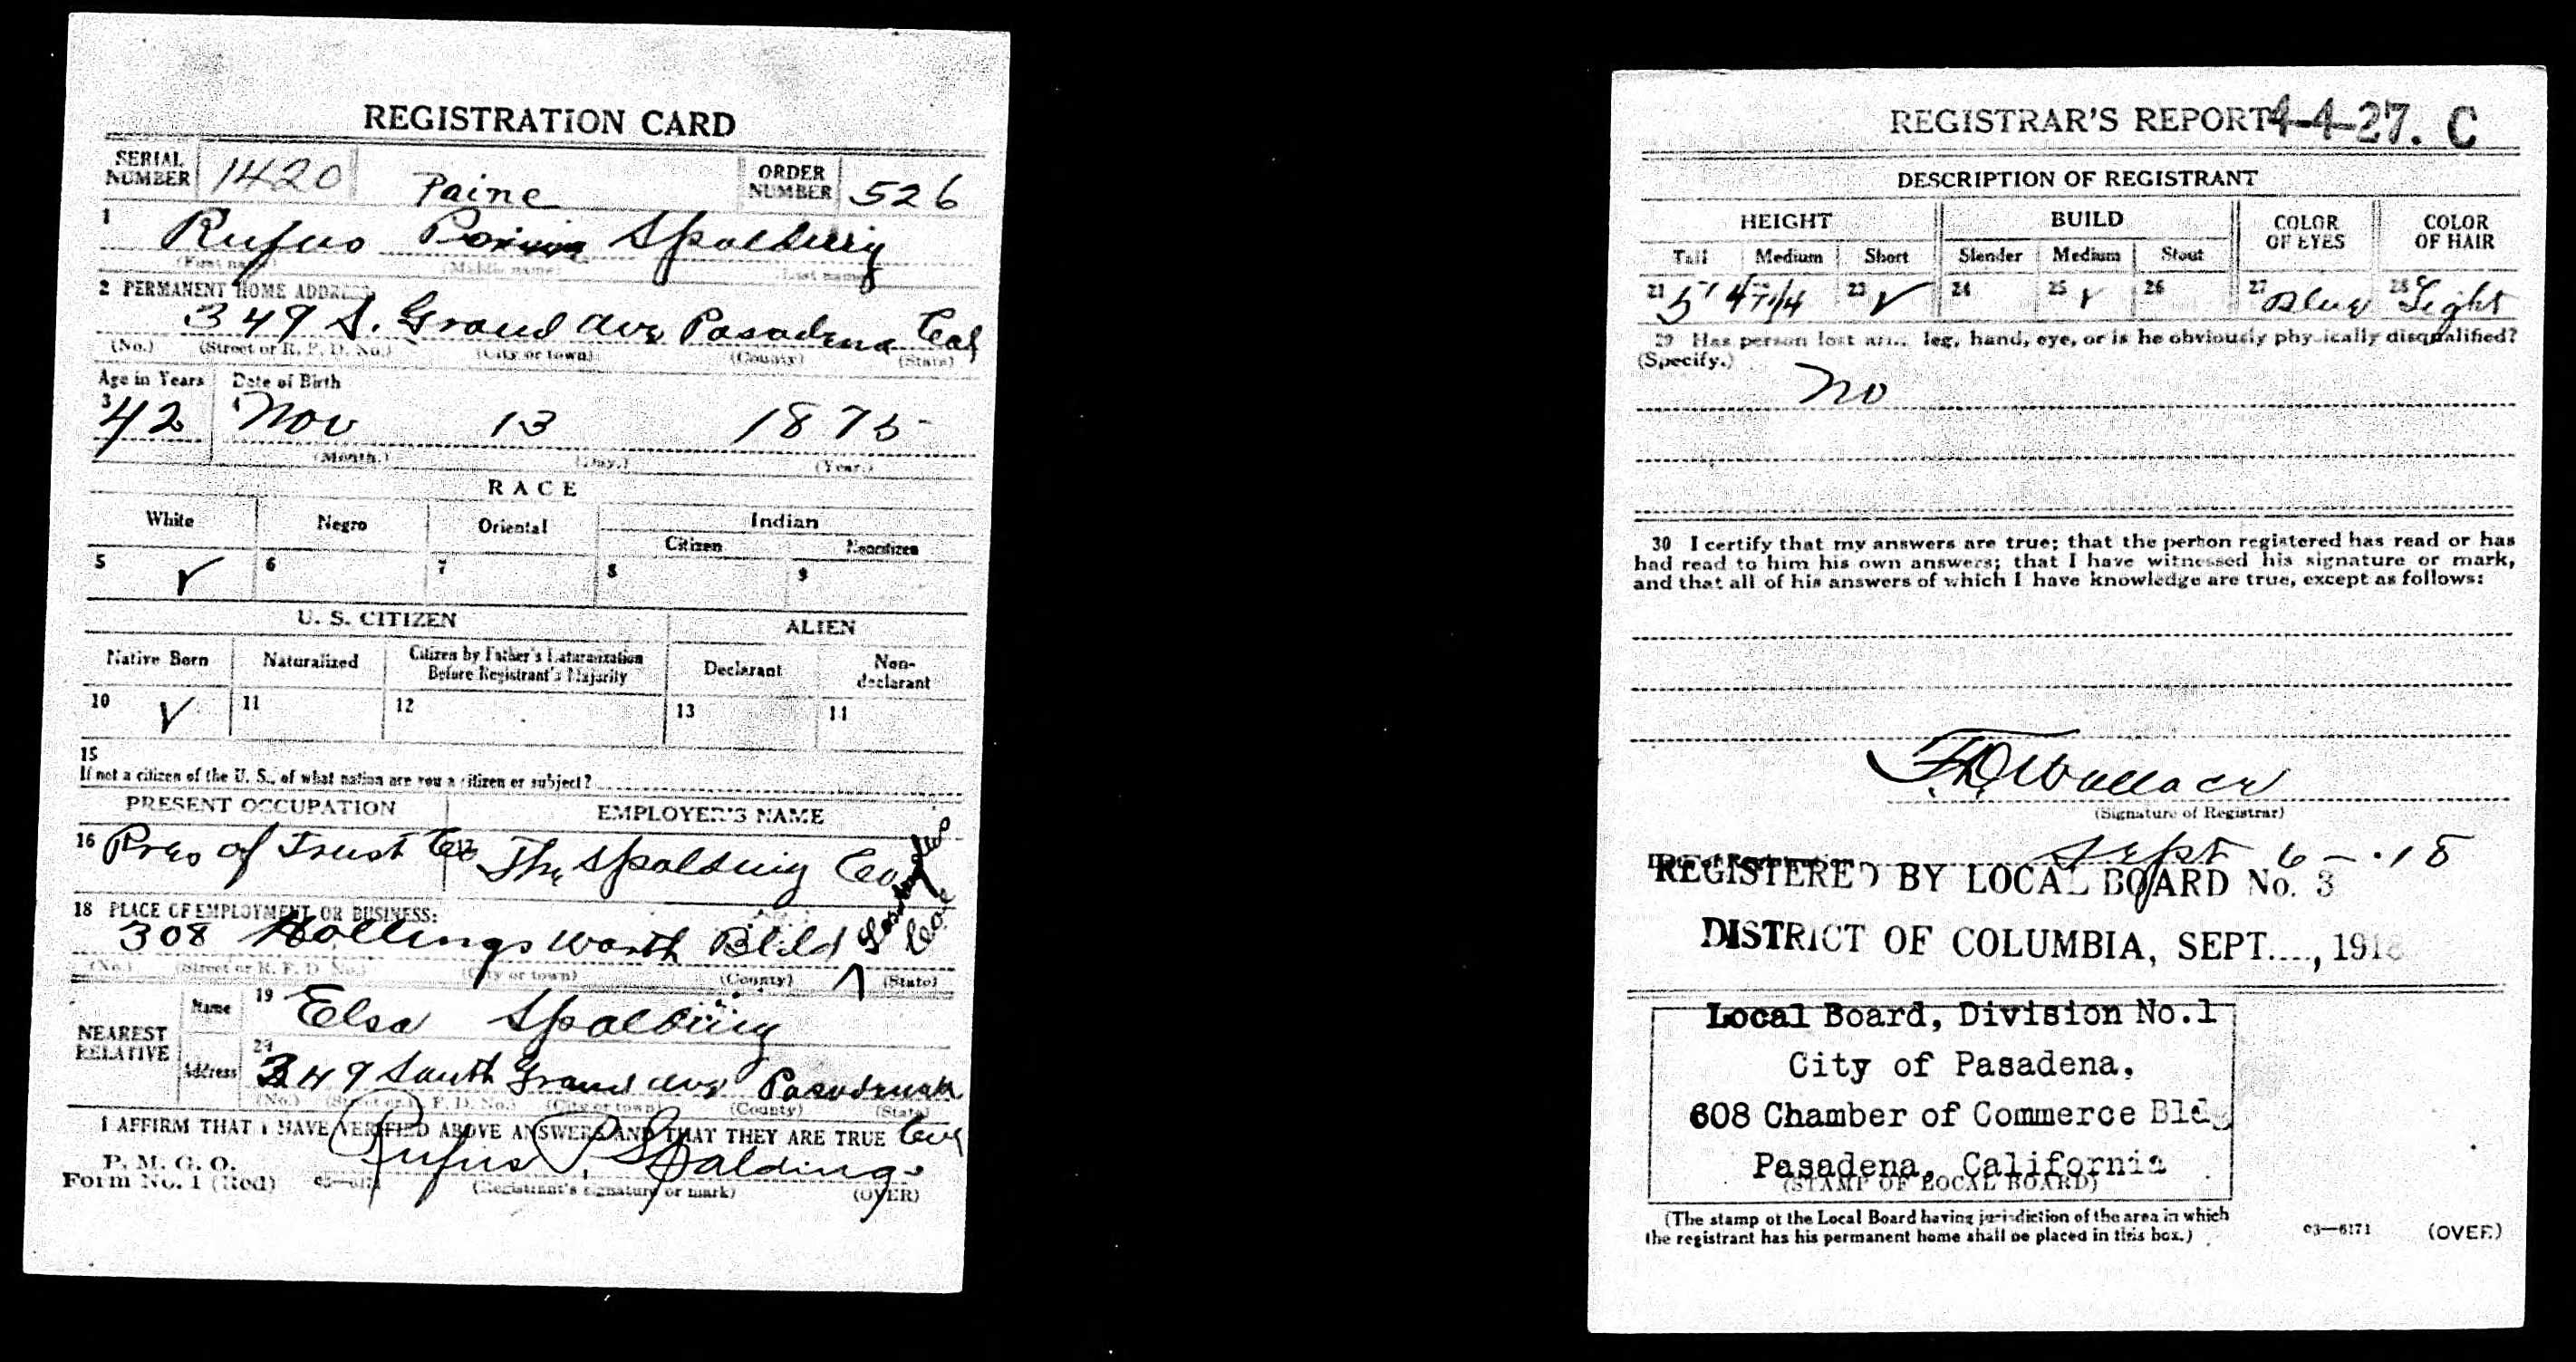 REGISTRATION CARD
SERIAL NUMBER 1420 Paine ORDER NUMBER 526
1 Rufus Spalding
(First name) (Middle name) (Last name)
2 PERMANENT HOME ADDRESS
349 S. Grand ave Pasadena Cal
(No.) (Street or R. F. D. No.) (City or town) (County) (State)
Age in Years Date of Birth
3 42 4 Nov 13 1875
(Month.) (Day.) (Year.)
RACE
White Negro Oriental Indian
Citizen Noncitizen
5 ✓ 6 7 8 9
U. S. CITIZEN ALIEN
Native Born Naturalized Citizen by Father's Naturalization Before Registrant's Majority Declarant Non-declarant
10 ✓ 11 12 13 14
15
If not a citizen of the U. S., of what nation are you a citizen or subject?
PRESENT OCCUPATION EMPLOYER'S NAME
16 Pres of Trust Co 17 The Spalding Co
18 PLACE OF EMPLOYMENT OR BUSINESS:
308 Hollingsworth Bldd Los Angeles Cal
(No.) (Street or R. F. D. No.) (City or town) (County) (State)
NEAREST RELATIVE
Name 19 Elsa Spalding
Address 20 349 South Grand ave Pasadena
(No.) (Street or R. F. D. No.) (City or town) (County) (State)
I AFFIRM THAT I HAVE VERIFIED ABOVE ANSWERS AND THAT THEY ARE TRUE Cal
P. M. G. O.
Form No. 1 (Red) 03—6171 Rufus P. Spalding
(Registrant's signature or mark) (OVER)
REGISTRAR'S REPORT 4-4-27. C
DESCRIPTION OF REGISTRANT
HEIGHT BUILD COLOR OF EYES COLOR OF HAIR
Tall Medium Short Slender Medium Stout
21 5' 4 7 1/4 23 ✓ 24 25 ✓ 26 27 Blue 28 Light
29 Has person lost arm, leg, hand, eye, or is he obviously physically disqualified?
(Specify.)
No
30 I certify that my answers are true; that the person registered has read or has
had read to him his own answers; that I have witnessed his signature or mark,
and that all of his answers of which I have knowledge are true, except as follows:
Wallace
(Signature of Registrar)
Date of Registration Sept 6 - 18
REGISTERED BY LOCAL BOARD No. 3
DISTRICT OF COLUMBIA, SEPT...., 1918
Local Board, Division No.1
City of Pasadena,
608 Chamber of Commerce Bldg
Pasadena, California
(STAMP OF LOCAL BOARD)
(The stamp of the Local Board having jurisdiction of the area in which
the registrant has his permanent home shall be placed in this box.)
03—6171 (OVER)